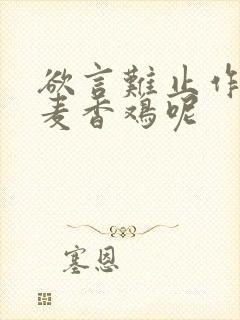 欲言難止作
麦香鸡呢
塞恩